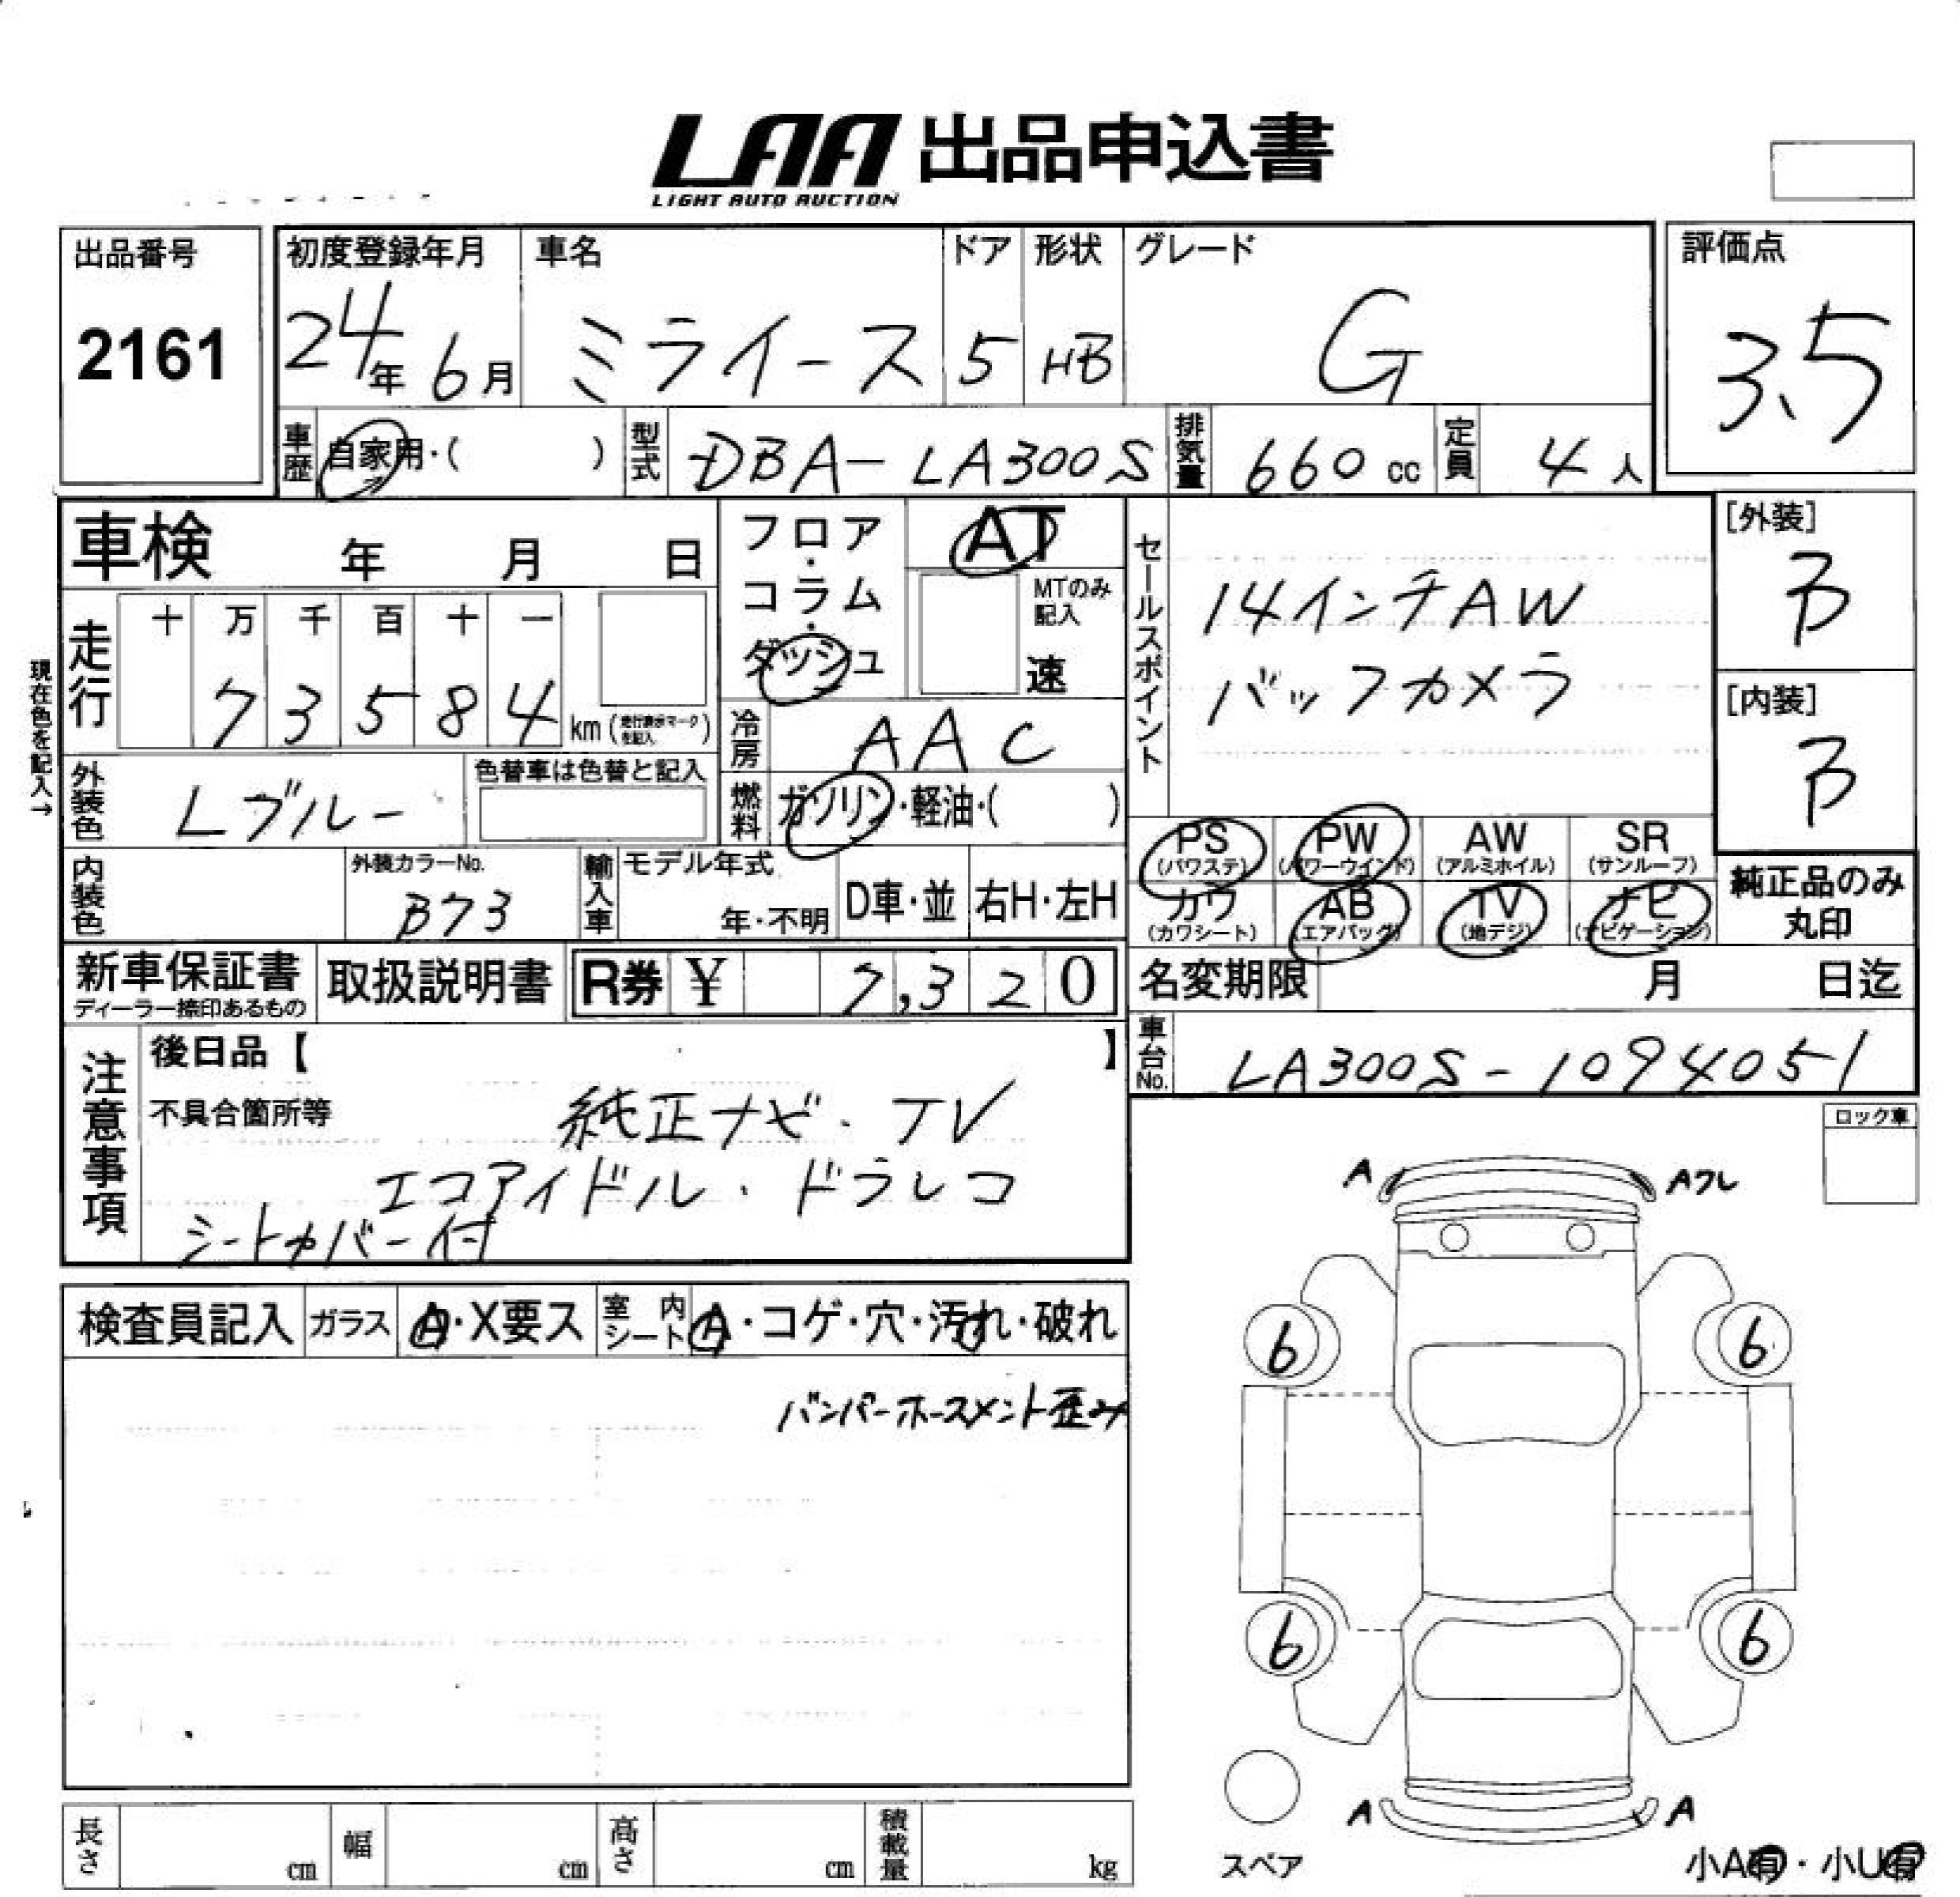 LAA 出品申込書
LIGHT AUTO AUCTION
出品番号
2161
初度登録年月 車名 ドア 形状 グレード
24年 6月 ミライース 5 HB G
評価点
3.5
車歴 自家用・( ) 型式 DBA-LA300S 排気量 660 cc 定員 4 人
車検 年 月 日
フロア・コラム・ダッシュ
AT
MTのみ記入
速
セールスポイント
14インチAW
バックカメラ
[外装]
B
[内装]
B
現在色を記入→
走行
十 万 千 百 十 一
7 3 5 8 4 km (走行表示マークを記入)
冷房 AAC
外装色 Lブルー 色替車は色替と記入
燃料 ガソリン・軽油・( )
PS (パワステ) PW (パワーウインド) AW (アルミホイル) SR (サンルーフ)
カワ (カワシート) AB (エアバッグ) TV (地デジ) ナビ (ナビゲーション)
純正品のみ
丸印
内装色 外装カラーNo.
B73
輸入車 モデル年式
年・不明 D車・並 右H・左H
新車保証書
ディーラー捺印あるもの
取扱説明書 R券 ¥ 7,320
名変期限 月 日迄
車台No. LA300S-1094051
注意事項
後日品【 】
不具合箇所等 純正ナビ・TV
エコアイドル・ドラレコ
シートカバー付
ロック車
A Aフレ
検査員記入 ガラス A・X要ス 室内シート A・コゲ・穴・汚れ・破れ
バンパーホースメント歪み
6 6
6 6
A A
スペア
小A有・小U有
長さ cm 幅 cm 高さ cm 積載量 kg